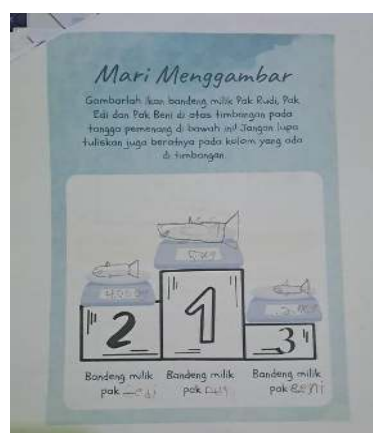 Mari Menggambar
Gambarlah ikan bandeng milik Pak Rudi, Pak
Edi dan Pak Beni di atas timbangan pada
tangga pemenang di bawah ini! Jangan lupa
tuliskan juga beratnya pada kolom yang ada
di timbangan
2
1
3
Bandeng milik
pak
Bandeng milik
pak
Bandeng milik
pak Beni